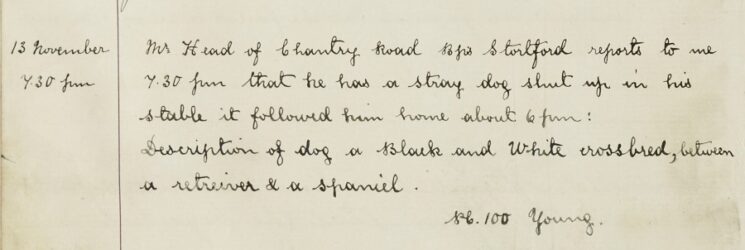 13 November
7.30 pm
Mr Head of Chantry Road Bps Stortford reports to me
7.30 pm that he has a stray dog shut up in his
stable it followed him home about 6 pm:
Description of dog a Black and White crossbred, between
a retreiver & a spaniel.
PC. 100 Young.